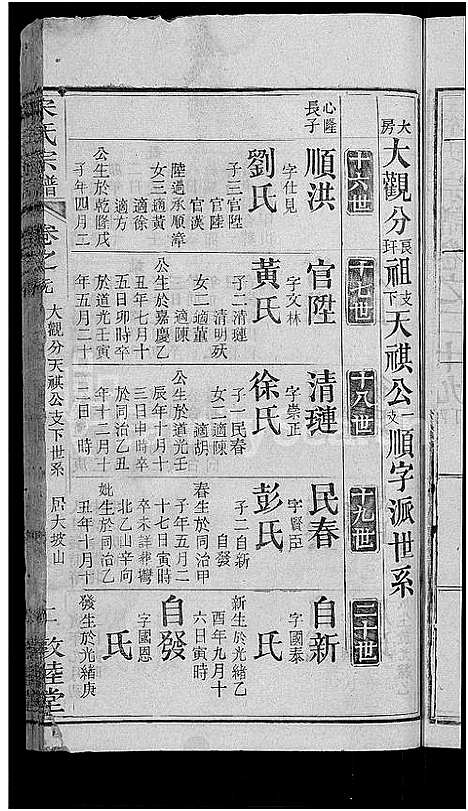 大房大觀分艮玕祖支下天祺公一支順字派世系
十六世
心隆長子
順洪
字仕見
劉氏
子三官陞
官陸
官漢
陸過承順漳
女三適黃
適徐
適方
公生於乾隆戊
子年四月二
十七世
官陞
字文林
黃氏
子二清璉
清明殀
女二適董
適陳
公生於嘉慶乙
丑年七月十
五日卯時卒
於道光壬寅
年五月二十
十八世
清璉
字崇正
徐氏
子一民春
女二適陳
適胡
公生於道光壬
辰年十月十
三日申時卒
於同治乙丑
年十二月十
二日時
十九世
民春
字賢臣
彭氏
子二自新
自發
春生於同治甲
子年五月二
十七日寅時
卒未詳葬鸞
北乙山辛向
妣生於同治乙
丑年十月十
二十世
自新
字國泰
氏
新生於光緒乙
酉年九月十
六日寅時
自發
字國恩
氏
發生於光緒庚
宋氏宗譜
卷之
大觀分天祺公支下世系
居大坡山
二
敦睦堂